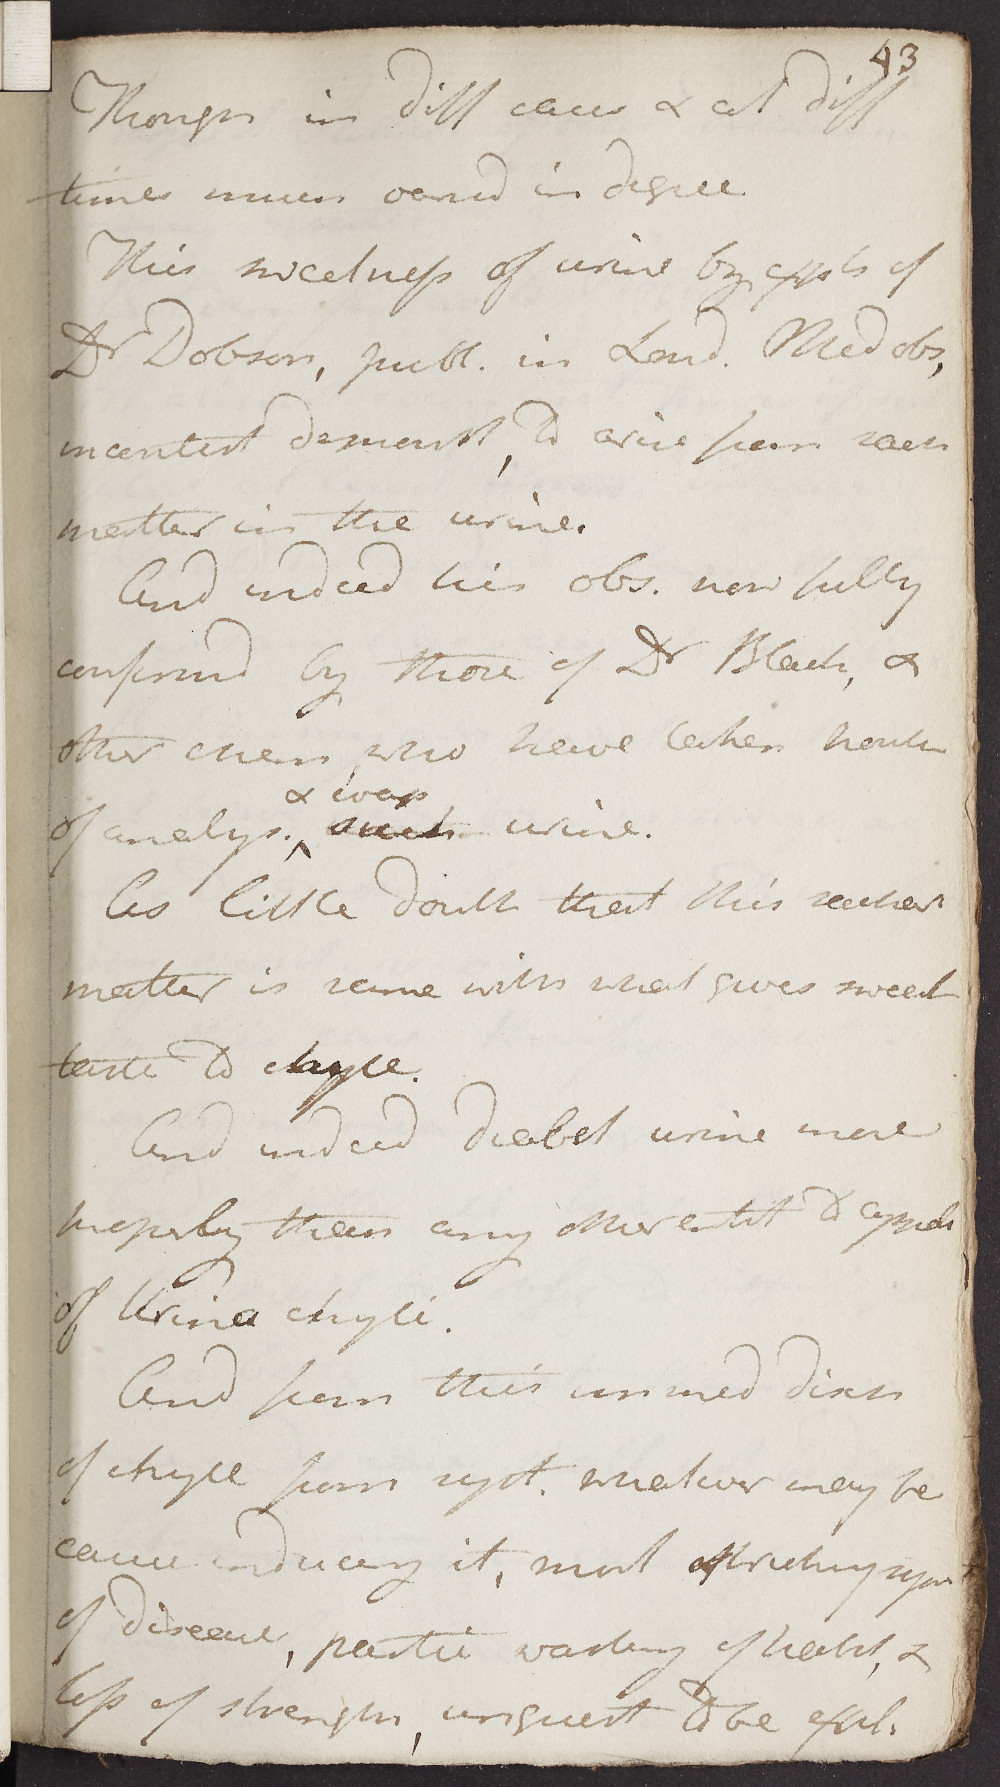 43
Though in diff cases & at diff
times much varied in degree
This sweetness of urine by expts of
Dr Dobson, publ. in Lond. Med obs,
incontest demonst, to arise from sacch
matter in the urine.
And indeed his obs. now fully
confirmd by those of Dr Black, &
other chem who have taken trouble
& evap
of analys. such urine.
As little doubt that this sacchar
matter is same with what gives sweet
taste to chyle.
And indeed diabet urine more
properly than any other entit to appell
of Urina chyli.
And from this immed disch
of chyle from syst. whatever may be
cause inducing it, most striking symp
of disease, partic wasting of habit, &
loss of strength, unquest to be expl.